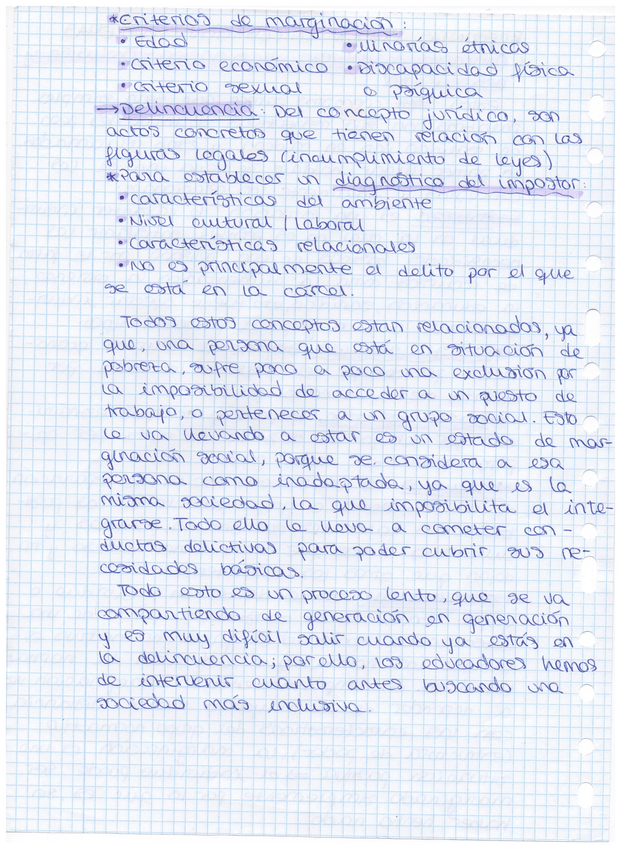 *Criterios de marginación:
• Edad
• Minorías étnicas
• Criterio económico
• Discapacidad física
• Criterio sexual
o psíquica
→Delincuencia: Del concepto jurídico, son
actos concretos que tienen relación con las
figuras legales (incumplimiento de leyes)
*Para establecer un diagnóstico del impostor:
• características del ambiente
• Nivel cultural / laboral
• características relacionales
• No es principalmente el delito por el que
se está en la cárcel.
Todos estos conceptos estan relacionados, ya
que, una persona que está en situación de
pobreza, sufre poco a poco una exclusión por
la imposibilidad de acceder a un puesto de
trabajo, o pertenecer a un grupo social. Esto
le va llevando a estar es un estado de mar-
ginación social, porque se considera a esa
persona como inadaptada, ya que es la
misma sociedad, la que imposibilita el inte-
grarse. Todo ello le lleva a cometer con-
ductas delictivas para poder cubrir sus ne-
cesidades básicas.
Todo esto es un proceso lento, que se va
compartiendo de generación en generación
y es muy difícil salir cuando ya estás en
la delincuencia; por ello, los educadores hemos
de intervenir cuanto antes buscando una
sociedad más inclusiva.